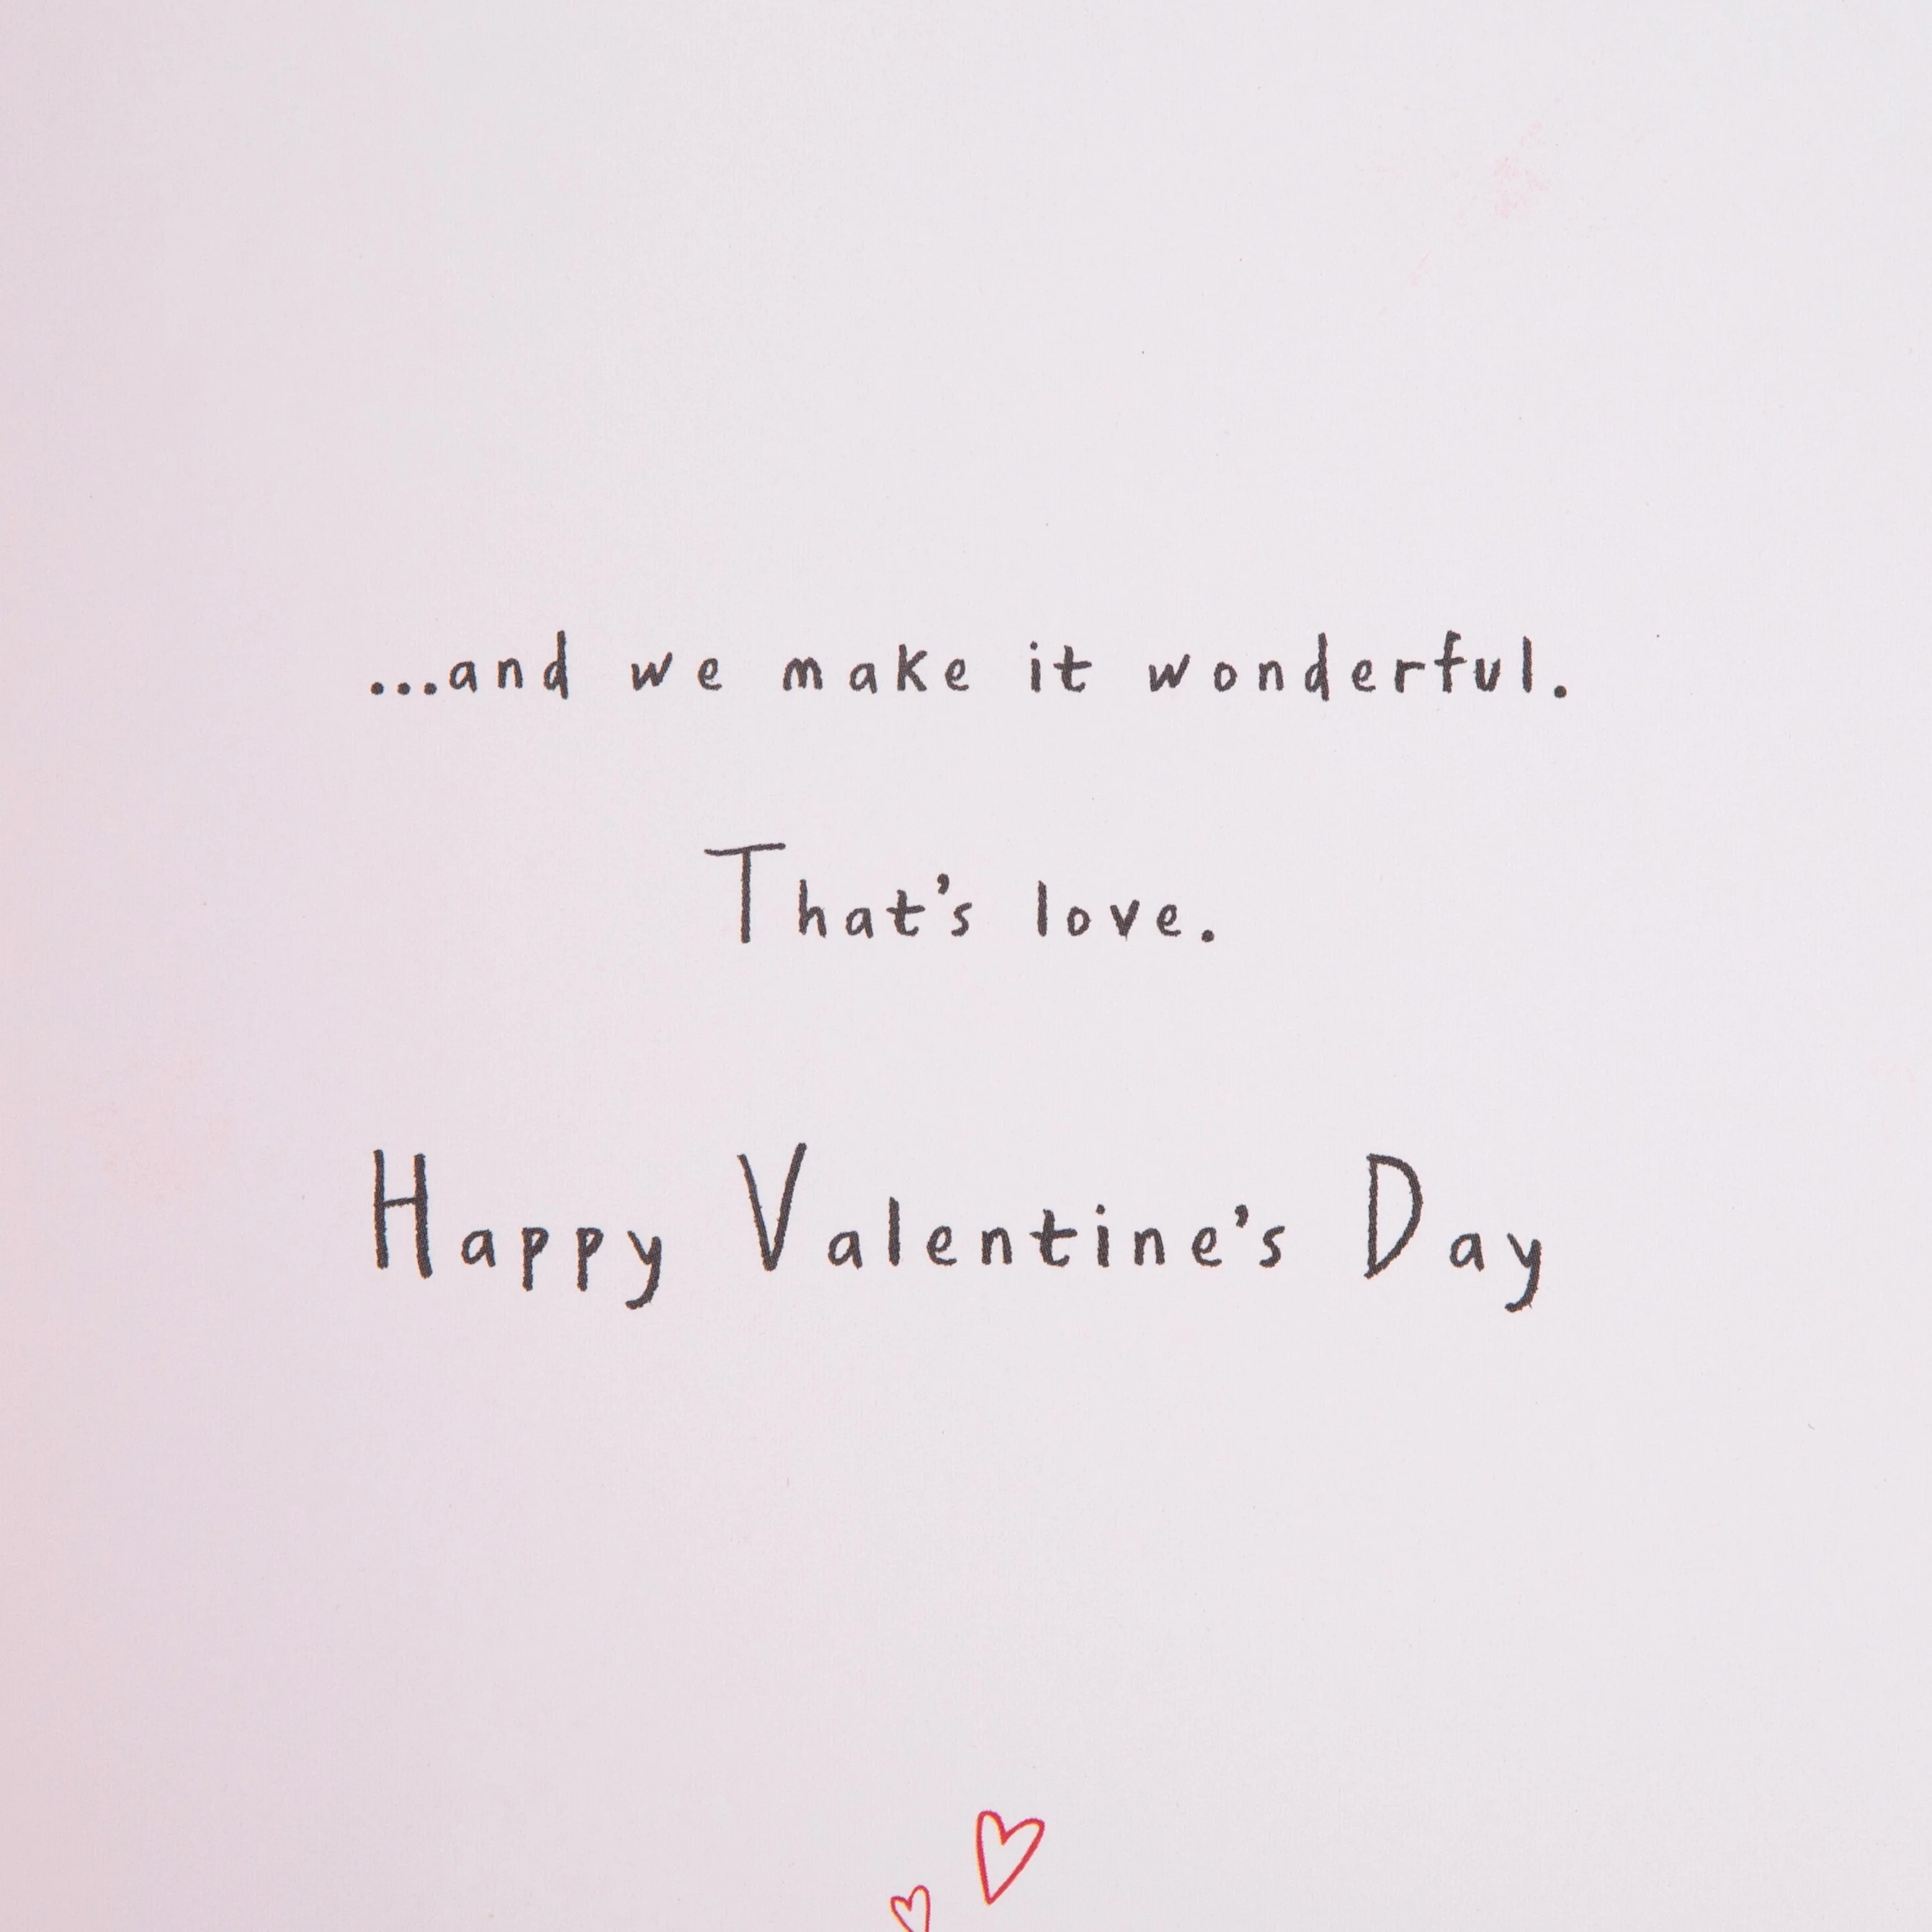 ...and we make it wonderful.
That's love.
Happy Valentine's Day